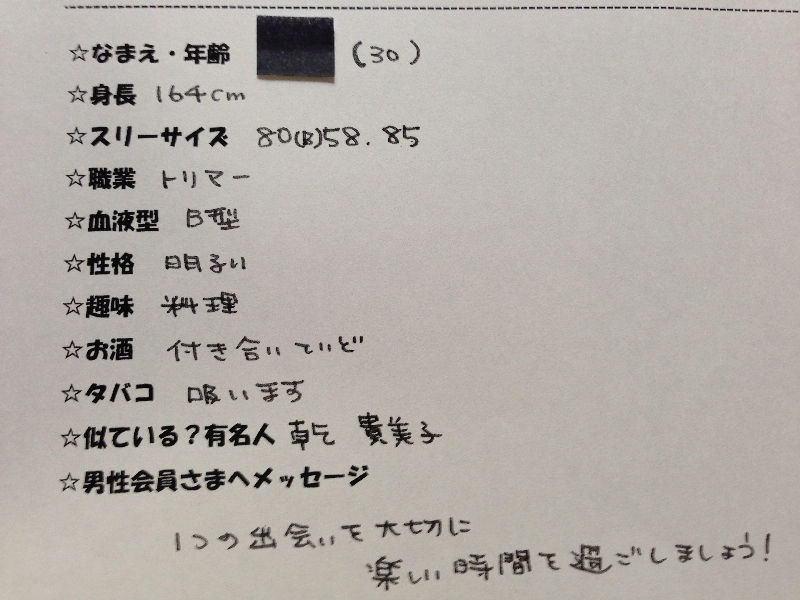 ☆なまえ・年齢 (30)
☆身長 164cm
☆スリーサイズ 80(B)58.85
☆職業 トリマー
☆血液型 B型
☆性格 明るい
☆趣味 料理
☆お酒 付き合いていど
☆タバコ 吸います
☆似ている?有名人 乾 貴美子
☆男性会員さまへメッセージ
1つの出会いを大切に
楽しい時間を過ごしましょう!